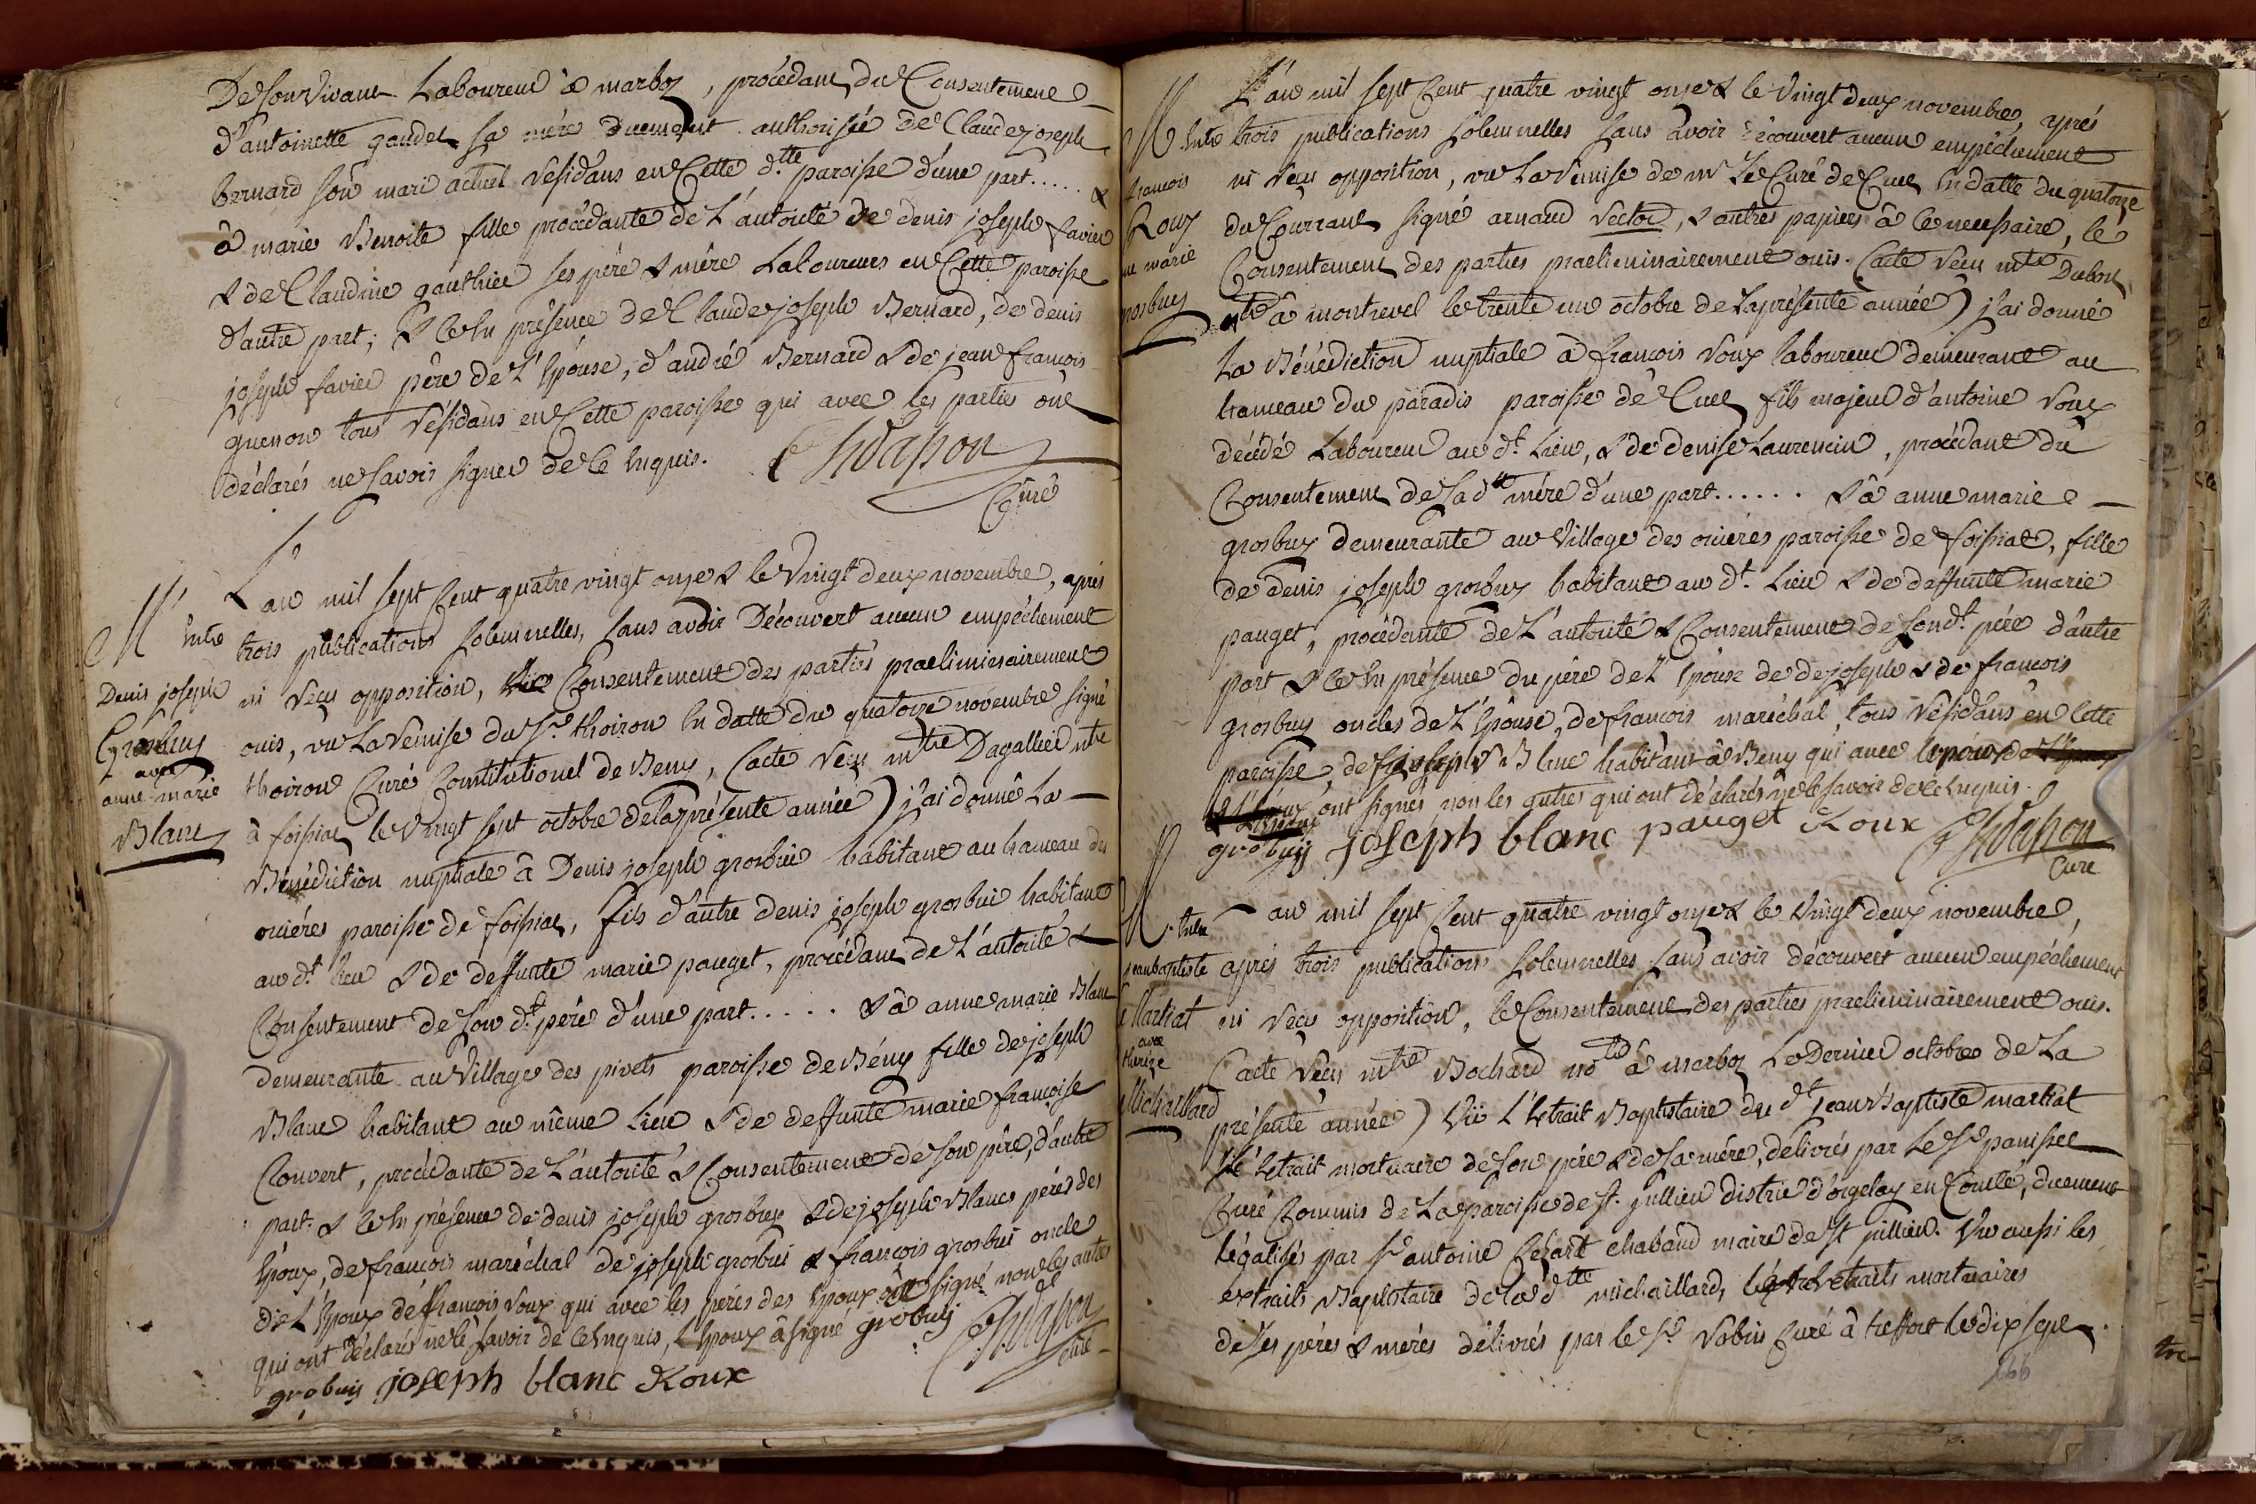 De son vivant Laboureur à marboz, procédant du Consentement
d'antoinette gaudet sa mére duement authorisée de Claude joseph
bernard son mari actuel résidans en Cette d.tte paroisse d'une part..... &
à marie Benoite fille procédante de L'autorité de denis joseph favier
& de Claudine gauthier ses pére & mére Laboureurs en Cette paroisse
d'autre part; & Ce En présence de Claude joseph Bernard, de denis
joseph favier pére de L'Epouse, d'andré Bernard & de jean françois
guenon tous résidans en Cette paroisse qui avec les parties ont
déclarés ne savoir signer de Ce Enquis.
Curé
M. Entre
Denis joseph
Grosbuy
avec
anne marie
Blanc
L'an mil sept Cent quatre vingt onze & le vingt deux novembre, aprés
trois publications solemnelles, sans avoir Découvert aucun empéchement
ni reçu opposition, Consentement des parties praeliminairement
ouis, vu La remise du S.r thoiron En datte du quatorze novembre signé
thoiron Curé Constitutionel de Beny, (acte reçu m.tre Dagallier n.re
à foissiat le vingt sept octobre de la présente année) j'ai donné La
Bénédiction nuptiale à Denis joseph grosbui habitant au hameau des
oriéres paroisse de foissiat, fils d'autre denis joseph grosbui habitant
au d.t lieu & de deffunte marie pauget, procédant de L'autorité &
Consentement de son d.t pére d'une part..... & à anne marie Blanc
demeurante au village des pivets paroisse de Bény fille de joseph
Blanc habitant au même Lieu & de deffunte marie françoise
Convert, procédante de L'autorité & Consentement de son pére, d'autre
part. & Ce En présence de denis joseph grosbuy & de joseph Blanc péres des
Epoux, de françois maréchal de joseph grosbui & françois grosbui oncle
de L'Epoux de françois roux qui avec les péres des Epoux ont signé non les autres
qui ont déclarés ne le savoir de Ce Enquis, L'Epoux à signé grobuy
grobuis joseph blanc Roux
Curé
M. Entre
françois
Roux
anne marie
Grosbuy
L'an mil sept Cent quatre vingt onze & le vingt deux novembre, aprés
trois publications solemnelles sans avoir découvert aucun empéchement
ni reçu opposition, vu La remise de m.r Le Curé de Cuet En datte du quatorze
du Courrant signé arnaud rector, & autres papiers à Ce necessaire, le
Consentement des parties praeliminairement ouis. (acte reçu m.tre Dubost
n.re à montrevel le trente un octobre de La présente année) j'ai donné
La Bénédiction nuptiale à françois roux laboureur demeurant au
hameau du paradis paroisse de Cuet fils majeur d'antoine roux
décédé Laboureur au d.t Lieu, & de denise Laurencin, procédant du
Consentement de sa d.tte mére d'une part...... & à anne marie
grosbuy demeurante au village des oriéres paroisse de foissiat, fille
de denis joseph grosbuy habitant au d.t Lieu & de deffunte marie
pauget, procédante de L'autorité & Consentement de son d.t pére d'autre
part & Ce En présence du pére de L'Epouse de de joseph & de françois
grosbuy oncles de L'Epouse, de françois maréchal tous résidans en Cette
paroisse, de joseph Blanc habitant à Beny qui avec le pére de
ont signés non les autres qui ont déclarés ne le savoir de Ce Enquis.
grobuy joseph blanc pauget Roux
Curé
M. Entre
Jean baptiste
Martiat
avec
thereze
Michaillard
L'an mil sept Cent quatre vingt onze & le vingt deux novembre,
aprés trois publications solemnelles sans avoir découvert aucun empéchement
ni reçu opposition, le Consentement des parties praeliminairement ouis.
(acte reçu m.tre Bochard no.re à marboz Le Dernier octobre de La
présente année) vu L'Extrait Baptistaire du d.t Jean Baptiste martiat
L'Extrait mortuaire de son pére & de sa mére, délivrés par Le S.r panisset
Curé Commis de La paroisse de S.t jullien district d'orgelay en Comté, duement
légalisés par S.r antoine Cesart chabaud maire de St jullien. Vu aussi les
extraits Baptistaire de la d.tte michaillard, Extraits mortuaires
de ses péres & méres délivrés par le S.r robin Curé à treffort le dix sept
166